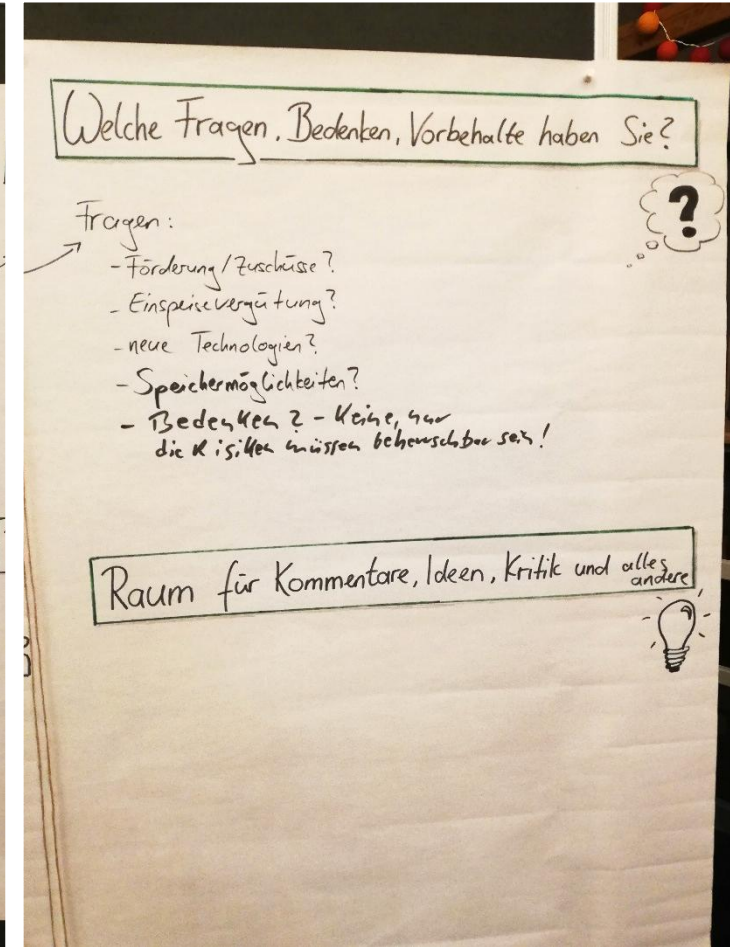 Welche Fragen, Bedenken, Vorbehalte haben Sie?
?
Fragen:
- Förderung/Zuschüsse?
- Einspeisevergütung?
- neue Technologien?
- Speichermöglichkeiten?
- Bedenken? - Keine, nur
die Risiken müssen beherrschbar sein!
Raum für Kommentare, Ideen, Kritik und alles
andere